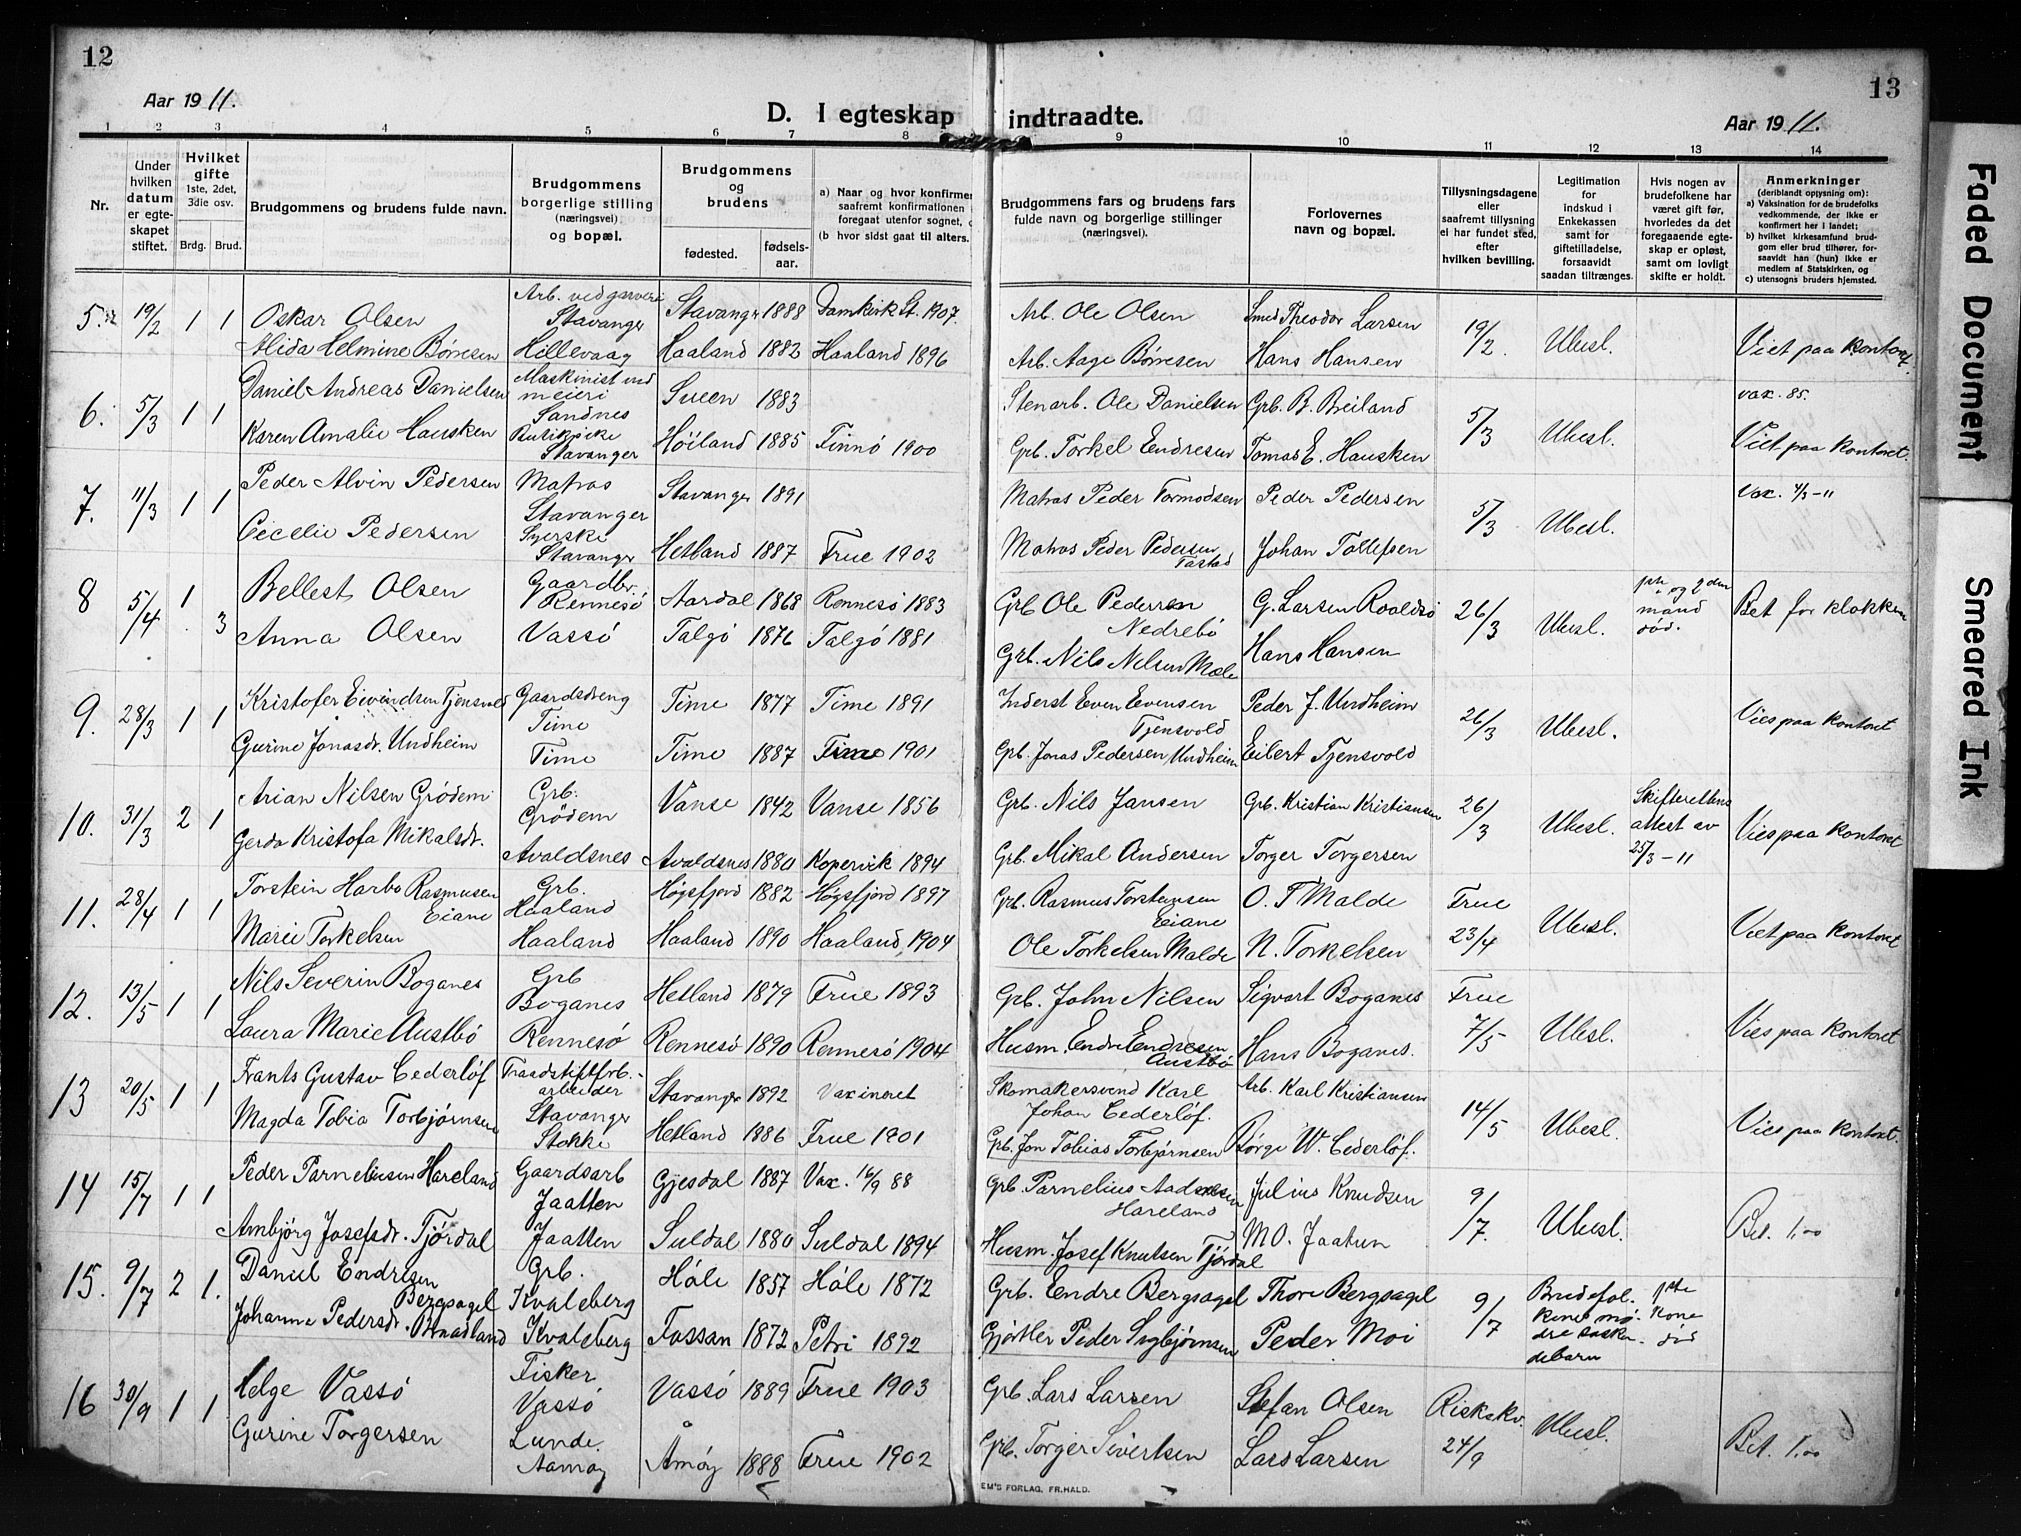 12
13
Aar 1911.
D. I egteskap indtraadte.
Aar 1911.
1 2 3 4 5 6 7 8 9 10 11 12 13 14
Nr.
Under hvilken datum er egteskapet stiftet.
Hvilket gifte 1ste, 2det, 3die osv.
Brdg. Brud.
Brudgommens og brudens fulde navn.
Brudgommens borgerlige stilling (næringsvei) og bopæl.
Brudgommens og brudens
fødested.
fødsels-aar.
a) Naar og hvor konfirmer
saafremt konfirmationen
foregaat utenfor sognet,
(b hvor sidst gaat til alters.
Brudgommens fars og brudens fars fulde navn og borgerlige stillinger (næringsvei).
Forlovernes navn og bopæl.
Tillysningsdagene eller saafremt tillysning ei har fundet sted, efter hvilken bevilling.
Legitimation for indskud i Enkekassen samt for giftetilladelse, forsaavidt saadan tiltrænges.
Hvis nogen av brudefolkene har været gift før, hvorledes da det foregaaende egteskap er opløst, samt om lovlig skifte er holdt.
Anmerkninger (deriblandt oplysning om):
a) Vaksination for de brudefolks vedkommende, der ikke er konfirmert her i landet;
b) hvilket kirkesamfund brudgom eller brud tilhører, forsaavidt han (hun) ikke er medlem af Statskirken, og
c) utensogns bruders hjemsted.
5. 19/2 1 1 Oskar Olsen Arb. ved garveri Stavanger Stavanger 1888 Domkirk St. 1907. Arb. Ole Olsen Smed Theodor Larsen 19/2. Ubesl. Viet paa kontoret.
Alida Helmine Børresen Hillevaag Haaland 1882 Haaland 1896 Arb. Aage Børresen Hans Hansen
6. 5/3 1 1 Daniel Andreas Danielsen Maskinist ved meieri Sandnes Sveen 1883 Stenarb. Ole Danielsen Grb. B. Breiland 5/3 Ubesl. vax. 85.
Karen Amalie Hausken Butikpike Stavanger Høiland 1885 Finnö 1900 Grb. Torkel Endresen Tomas E. Hausken Viet paa kontoret.
7. 11/3 1 1 Peder Alvin Pedersen Matros Stavanger Stavanger 1891 Matros Peder Tormodsen Peder Pedersen 5/3 Ubesl. Vax. 4/3-11
Cecelie Pedersen Syerske Stavanger Hetland 1887 Frue 1902 Matros Peder Pedersen Tastad Johan Tollefsen
8 5/4 1 3 Bellest Olsen Gaardbr. Rennesö Aardal 1868 Rennesö 1883 Grb Ole Pedersen Nedrebö G. Larsen Roaldsö 26/3 Ubesl. og 2den mand död. Bet for klokken
Anna Olsen Vassö Talgö 1876 Talgö 1881 Grb. Nils Nilsen Mæle Hans Hansen
9. 28/3 1 1 Kristofer Eivindsen Tjensvold Gaardsdreng Time Time 1877 Time 1891 Inderst Even Evensen Tjensvold Peder J. Undheim 26/3 Ubesl. Vies paa kontoret
Gurine Jonasdr. Undheim Time Time 1887 Time 1901 Grb. Jonas Pedersen Undheim Eilert Tjensvold
10. 31/3 2 1 Arian Nilsen Grödem Grb. Grödem Vanse 1842 Vanse 1856 Grb. Nils Jansen Grb. Kristian Kristiansen 26/3 Ubesl. Skifterettens attest av 25/3-11 Vies paa kontoret
Gerda Kristofa Mikalsdr. Avaldsnes Avaldsnes 1880 Kopervik 1894 Grb. Mikal Andersen Torger Torgersen
11. 28/4 1 1 Torstein Harbo Rasmusen Eiane Grb. Haaland Högsfjord 1882 Högsfjord 1897 Grb. Rasmus Torsteinsen Eiane O. T Malde Frue 23/4 Ubesl. Viet paa kontoret
Marie Torkelsen Haaland Haaland 1890 Haaland 1904 Ole Torkelsen Malde N. Torkelsen
12. 13/5 1 1 Nils Severin Boganes Grb Boganes Hetland 1879 Frue 1893 Grb. John Nilsen Sigvart Boganes Frue 7/5 Ubesl. Vies paa kontoret
Laura Marie Austbö Rennesö Rennesö 1890 Rennesö 1904 Husm. Endre Endresen Austbö Hans Boganes.
13 20/5 1 1 Frants Gustav Cederlöf Traadstiftfrb.-arbeider Stavanger Stavanger 1892 Vaxineret Skomakersvend Karl Johan Cederlöf. Arb. Karl Kristiansen 14/5 Ubesl. Vies paa kontoret.
Magda Tobia Torbjørnsen Stokke Hetland 1886 Frue 1901 Grb. Jon Tobias Torbjørnsen Børge W. Cederlöf.
14 15/7 1 1 Peder Parneliusen Hareland Gaardsarb Jaatten Gjesdal 1887 Vax. 16/9 88 Grb. Parnelius Aadnesen Hareland Julius Knudsen 9/7. Ubesl. Bet. 1,00
Ambjörg Josefsdr. Tjördal Jaatten Suldal 1880 Suldal 1894 Husm. Josef Knutsen Tjördal M O. Jaatun
15. 9/7 2 1. Daniel Endresen Bergsagel Grb. Kvaleberg Höle 1857 Höle 1872 Grb. Endre Bergsagel Thore Bergsagel 9/7 Brudefolkene mødre söskendebarn 1ste kone död
Johanne Pedersdr. Braadland Kvaleberg Fossan 1872 Petri 1892 Gjørtler Peder Sigbjørnsen Peder Moi
16 30/9 1 1 Helge Vassö Fisker Vassö Vassö 1889 Frue 1903 Grb. Lars Larsen Stefan Olsen Riskekv. 24/9 Ubesl. Bet. 1,00
Gurine Torgersen Lunde. Aamøy Åmøy 1888 Frue 1902 Grb. Torger Sivertsen Lars Larsen
EM'S FORLAG, FR.HALD.
Faded Document
Smeared Ink